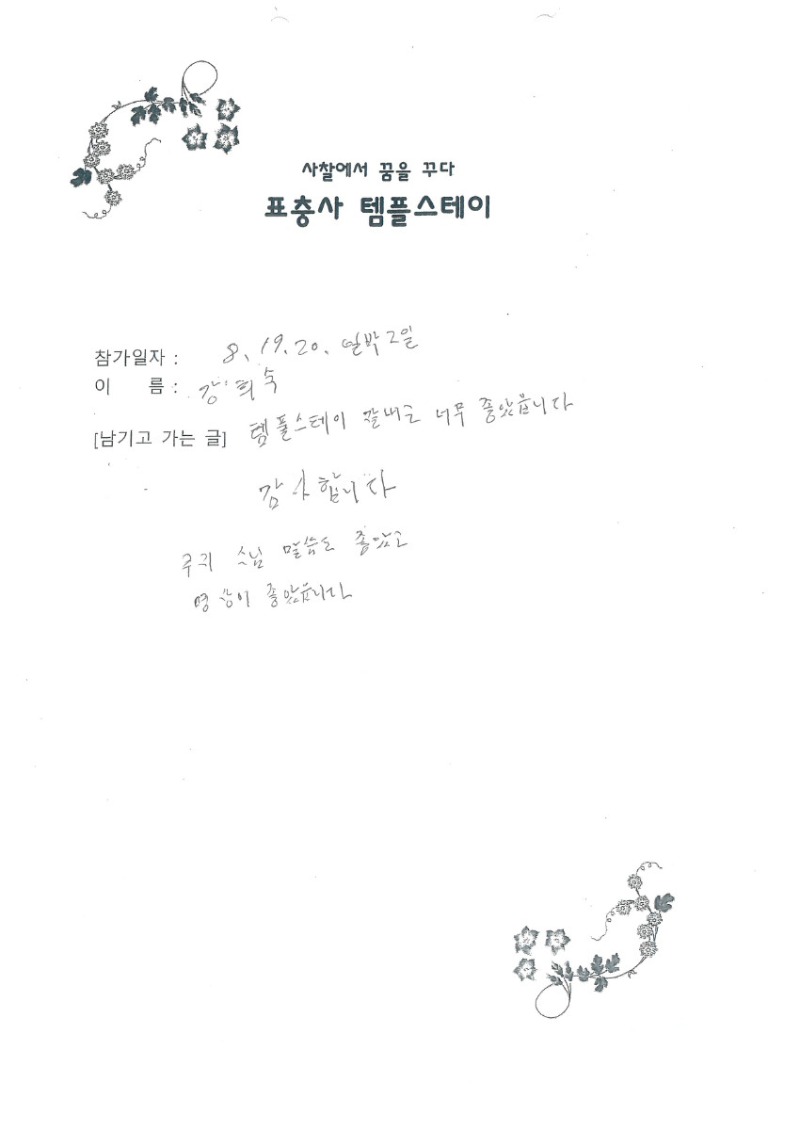 사찰에서 꿈을 꾸다
표충사 템플스테이
참가일자 : 8, 19. 20. 일박 2일
이 름 : 강희숙
[남기고 가는 글] 템플스테이 너무 좋았읍니다
감사합니다
스님 말씀도 좋았고
명상이 좋았읍니다